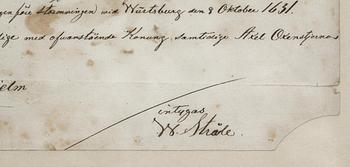 gen före stormningen vid Würtsburg den 8 Oktober 1631.
lige med ofvanstående Konung, samtidige Axel Oxenstjernas
ielm
intygas
W Stråle.